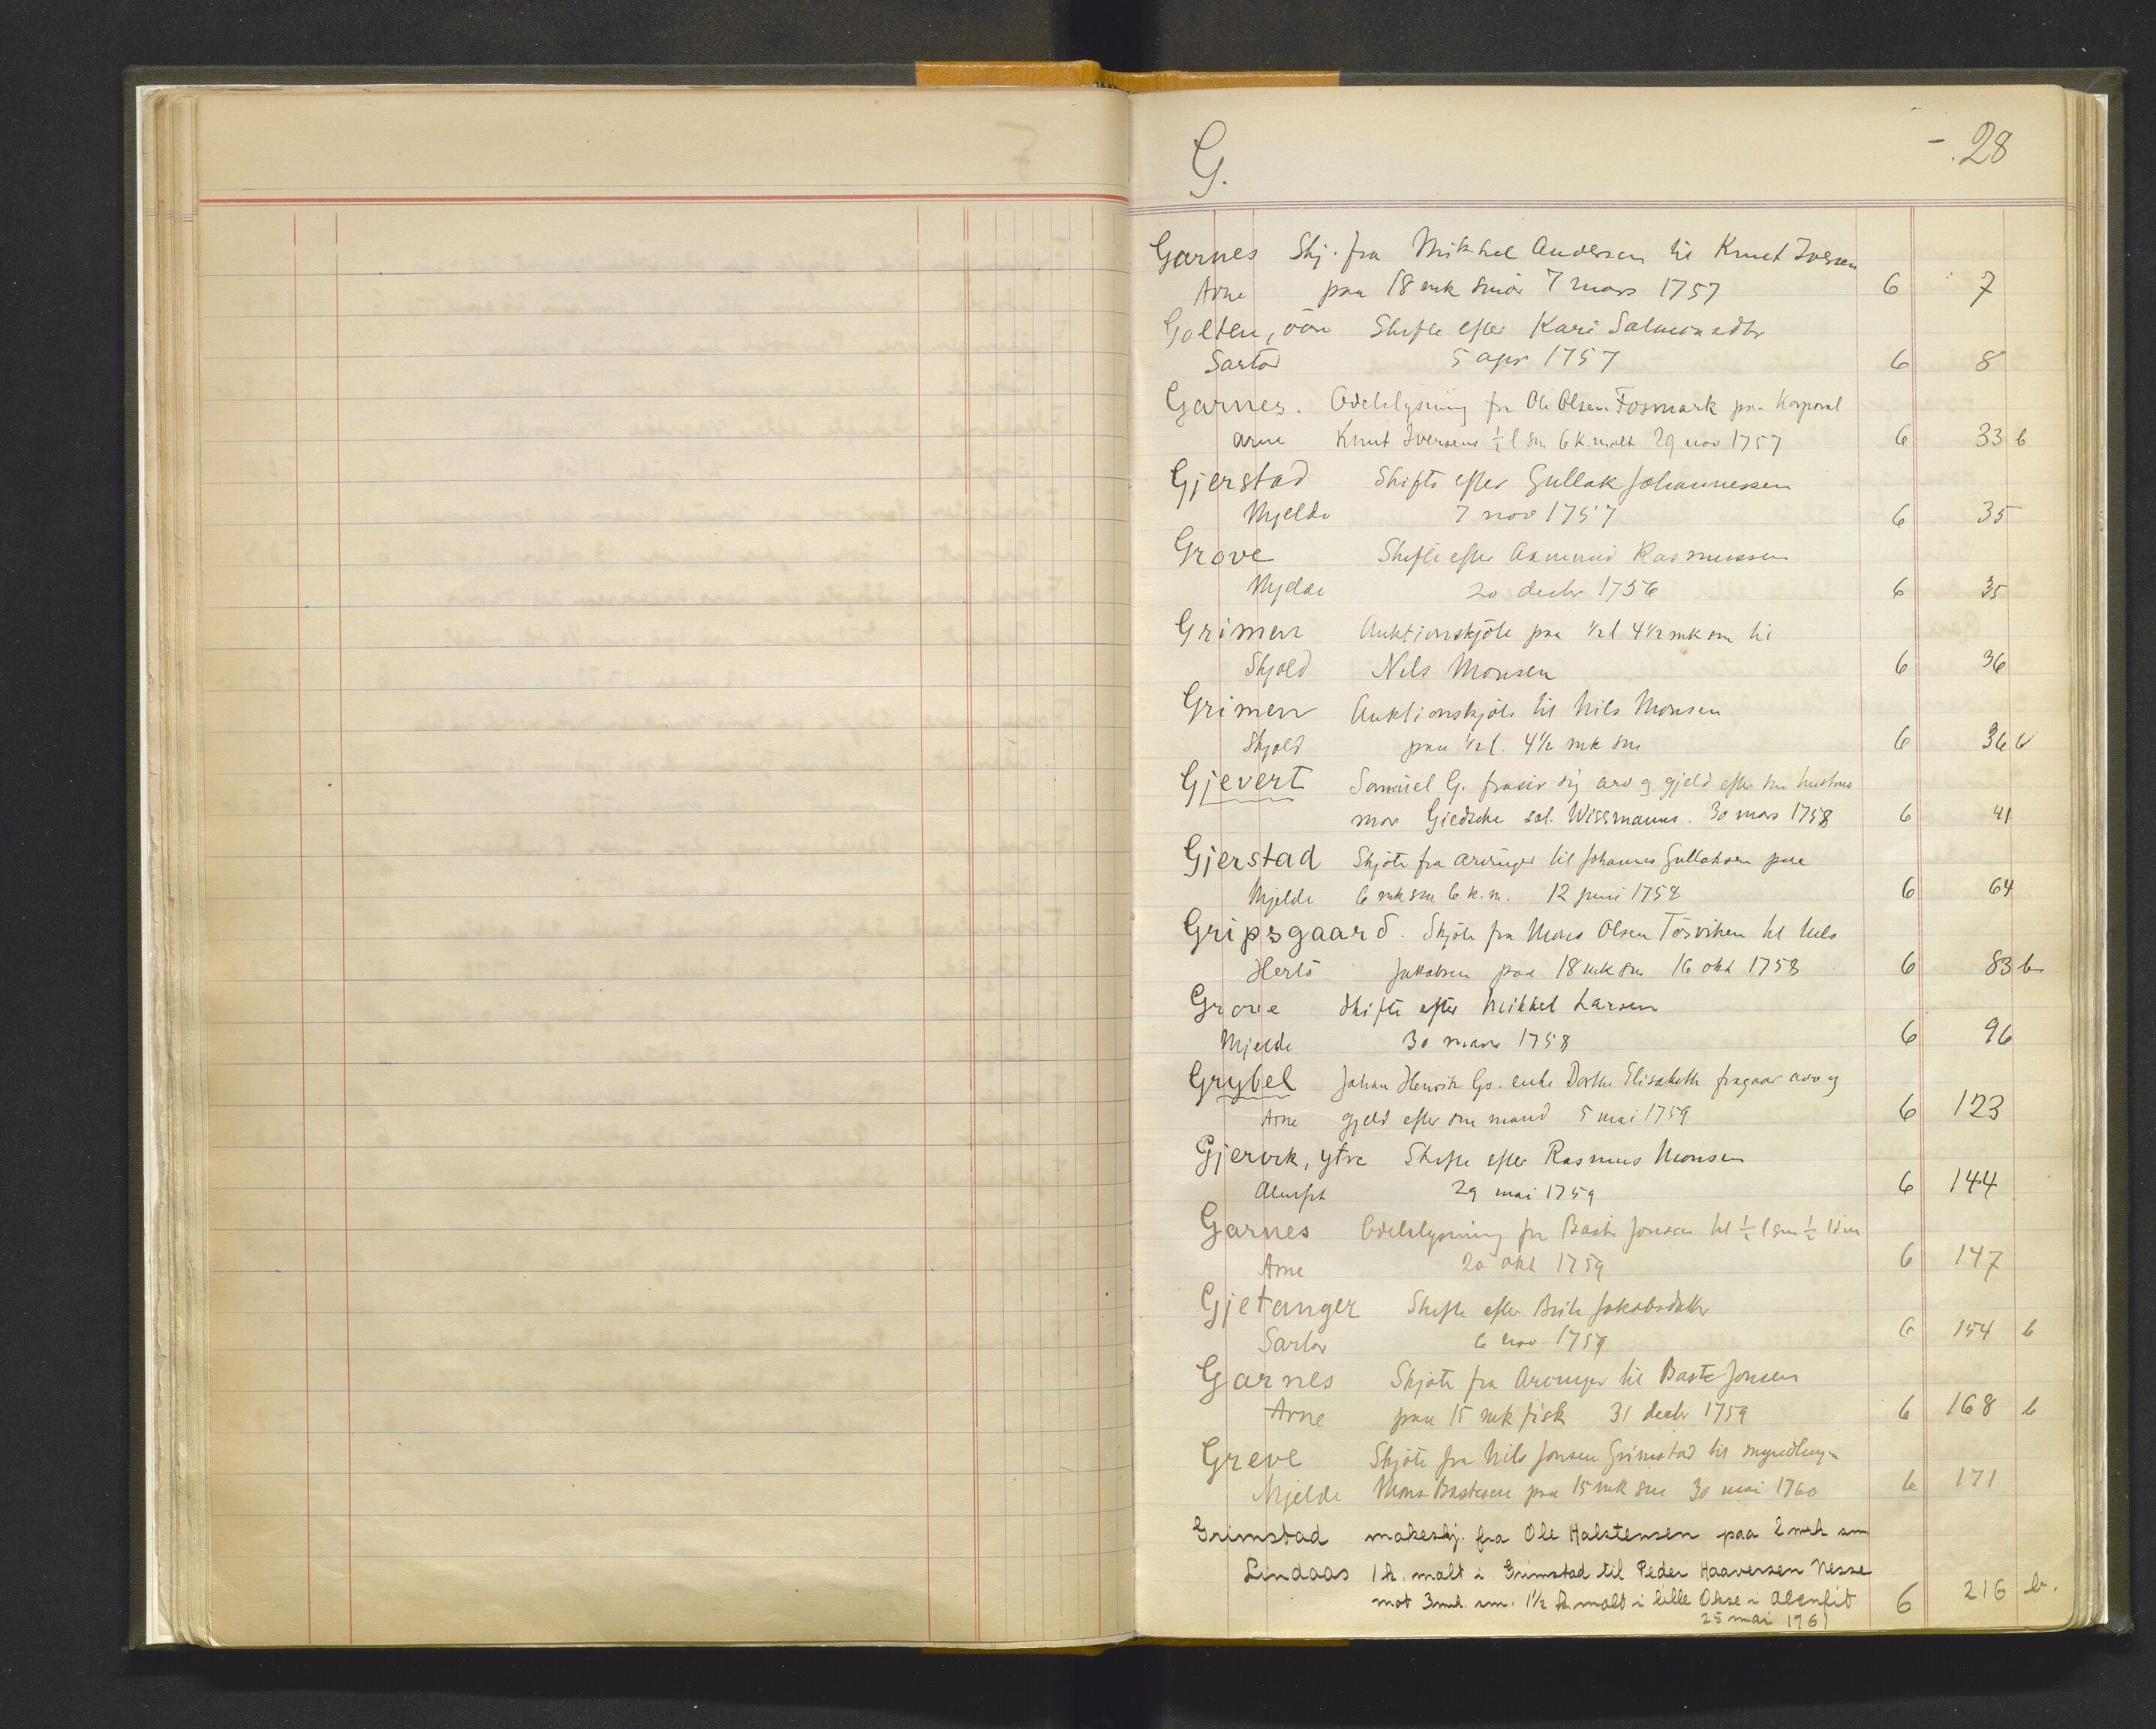 G.
28
Garnes Skj. fra Mikkel Andersen til Knut Iversen
Arne paa 18 mk smör 7 mars 1757 6 7
Golten, övre Skifte efter Kari Salmonsdtr
Sartor 5 apr 1757 6 8
Garnes. Odelslysning fra Ole Olsen Fosmark paa Korporal
Arne Knut Iversens ½ l sm 6 k. malt 29 nov 1757 6 33 b
Gjerstad Skifte efter Gullak Johannessen
Mjelde 7 nov 1757 6 35
Grove Skifte efter Aamund Rasmussen
Mjelde 20 decbr 1756 6 35
Grimen Auktionskjöte paa ½ l 4½ mk sm til
Skjold Nils Monsen 6 36
Grimen Auktionskjöte til Nils Monsen
Skjold paa ½ l. 4½ mk sm 6 36 b
Gjevert Samuel G. frasier sig arv og gjeld efter sin hustrus
mor Giedsche sal. Wissmanns. 30 mars 1758 6 41
Gjerstad Skjöte fra arvinger til Johannes Gullaksen paa
Mjelde 6 mk sm 6 k. m. 12 juni 1758 6 64
Gripsgaard. Skjöte fra Mons Olsen Tösviken til Nils
Herlö Jakobsen paa 18 mk sm 16 okt 1758 6 83 b
Grove Skifte efter Mikkel Larsen
Mjelde 30 mars 1758 6 96
Grybel Johan Henrik Gs. enke Dorthe Elisabeth fragaar arv og
Arne gjeld efter sin mand 5 mai 1759 6 123
Gjervik, ytre Skifte efter Rasmus Monsen
Alenfit 29 mai 1759 6 144
Garnes Odelslysning fra Baste Jonsen til ½ l sm ½
Arne 20 okt 1759 6 147
Gjetanger Skifte efter Brite Jakobsdatter
Sartor 6 nov 1759 6 154 b
Garnes Skjöte fra Arvinger til Baste Jonsen
Arne paa 15 mk fisk 31 decbr 1759 6 168 b
Greve Skjöte fra Nils Jonsen Grimstad til
Mjelde Mons Bastesen paa 15 mk sm 30 mai 1760 6 171
Grimstad makeskj. fra Ole Halstensen paa 2 mrk sm
Lindaas 1 k. malt i Grimstad til Peder Haaversen Nesse
mot 3 mrk. sm. 1½ k. malt i lille Okse i Alenfit 6 216 b.
25 mai 1761